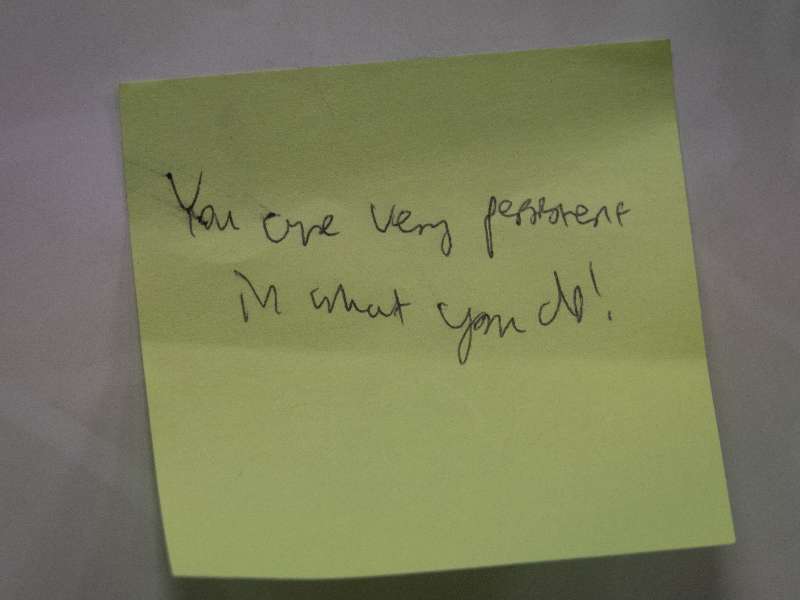 You are very persistent
in what you do!